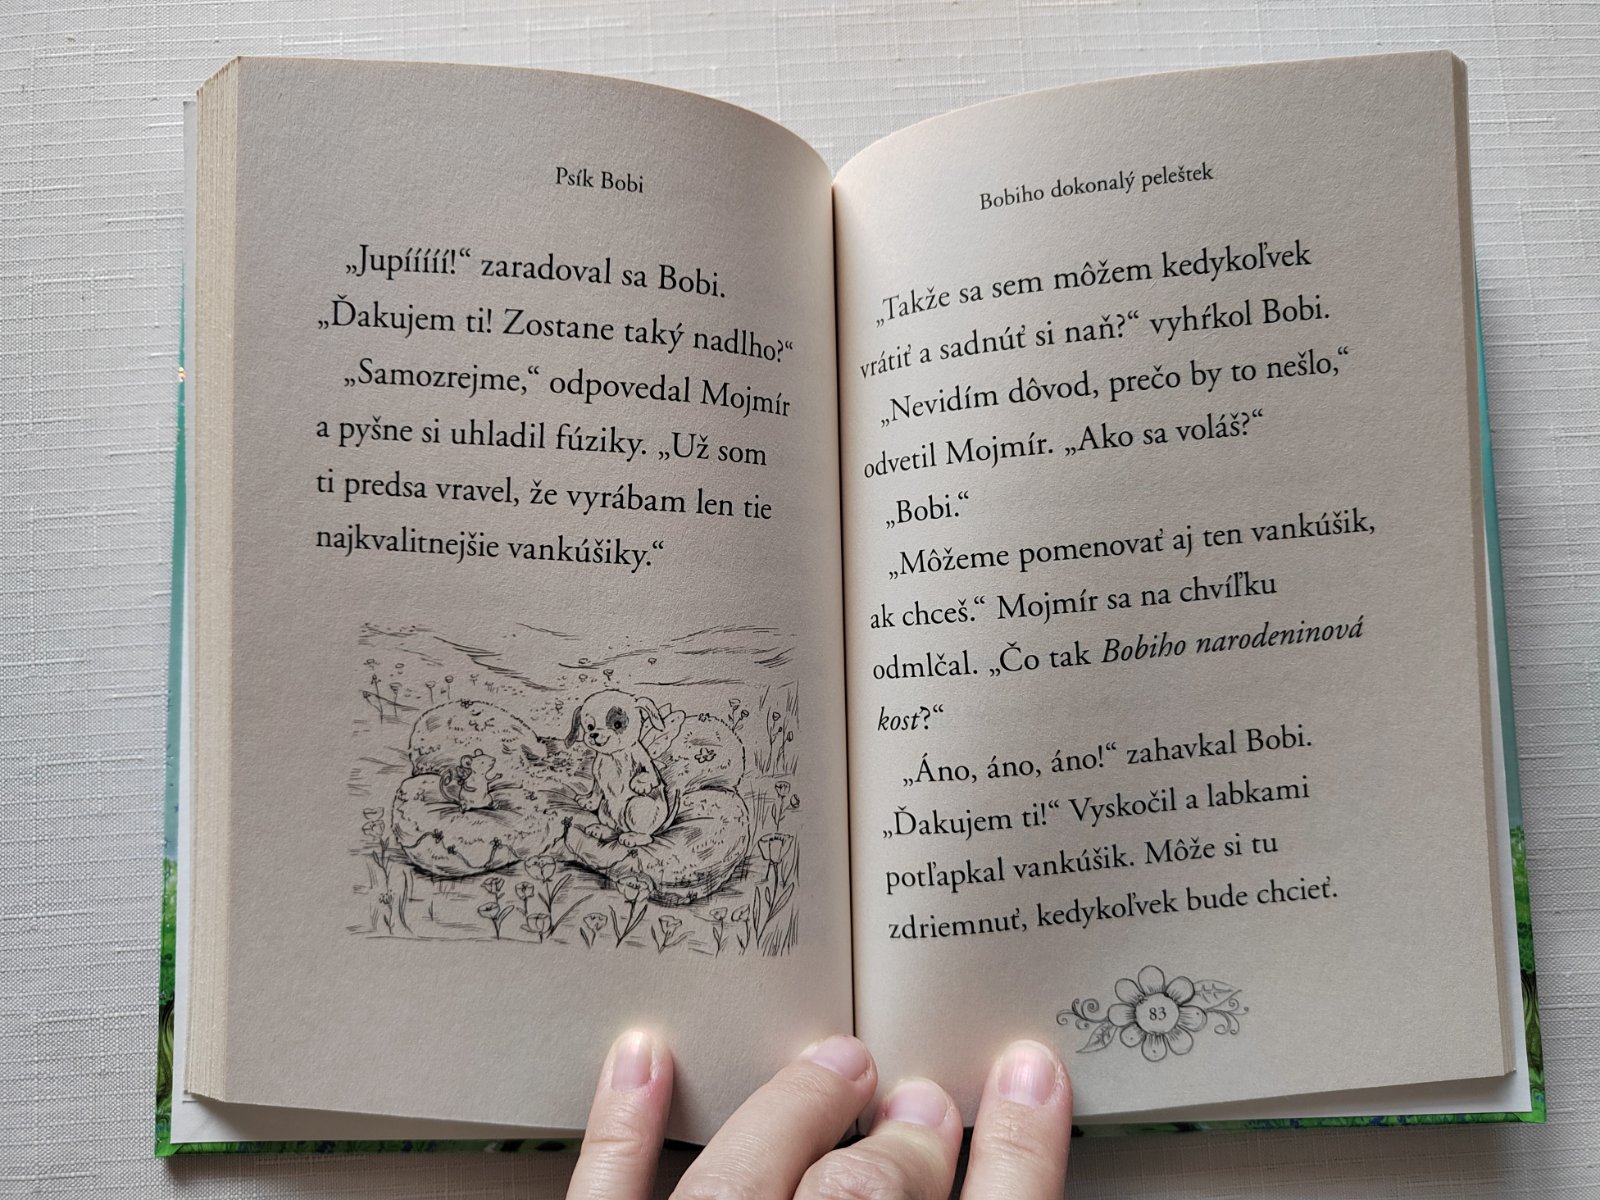 Psík Bobi
„Jupííííí!“ zaradoval sa Bobi.
„Ďakujem ti! Zostane taký nadlho?“
„Samozrejme,“ odpovedal Mojmír
a pyšne si uhladil fúziky. „Už som
ti predsa vravel, že vyrábam len tie
najkvalitnejšie vankúšiky.“
Bobiho dokonalý peleštek
„Takže sa sem môžem kedykoľvek
vrátiť a sadnúť si naň?“ vyhŕkol Bobi.
„Nevidím dôvod, prečo by to nešlo,“
odvetil Mojmír. „Ako sa voláš?“
„Bobi.“
„Môžeme pomenovať aj ten vankúšik,
ak chceš.“ Mojmír sa na chvíľku
odmlčal. „Čo tak Bobiho narodeninová
kosť?“
„Áno, áno, áno!“ zahavkal Bobi.
„Ďakujem ti!“ Vyskočil a labkami
potľapkal vankúšik. Môže si tu
zdriemnuť, kedykoľvek bude chcieť.
83